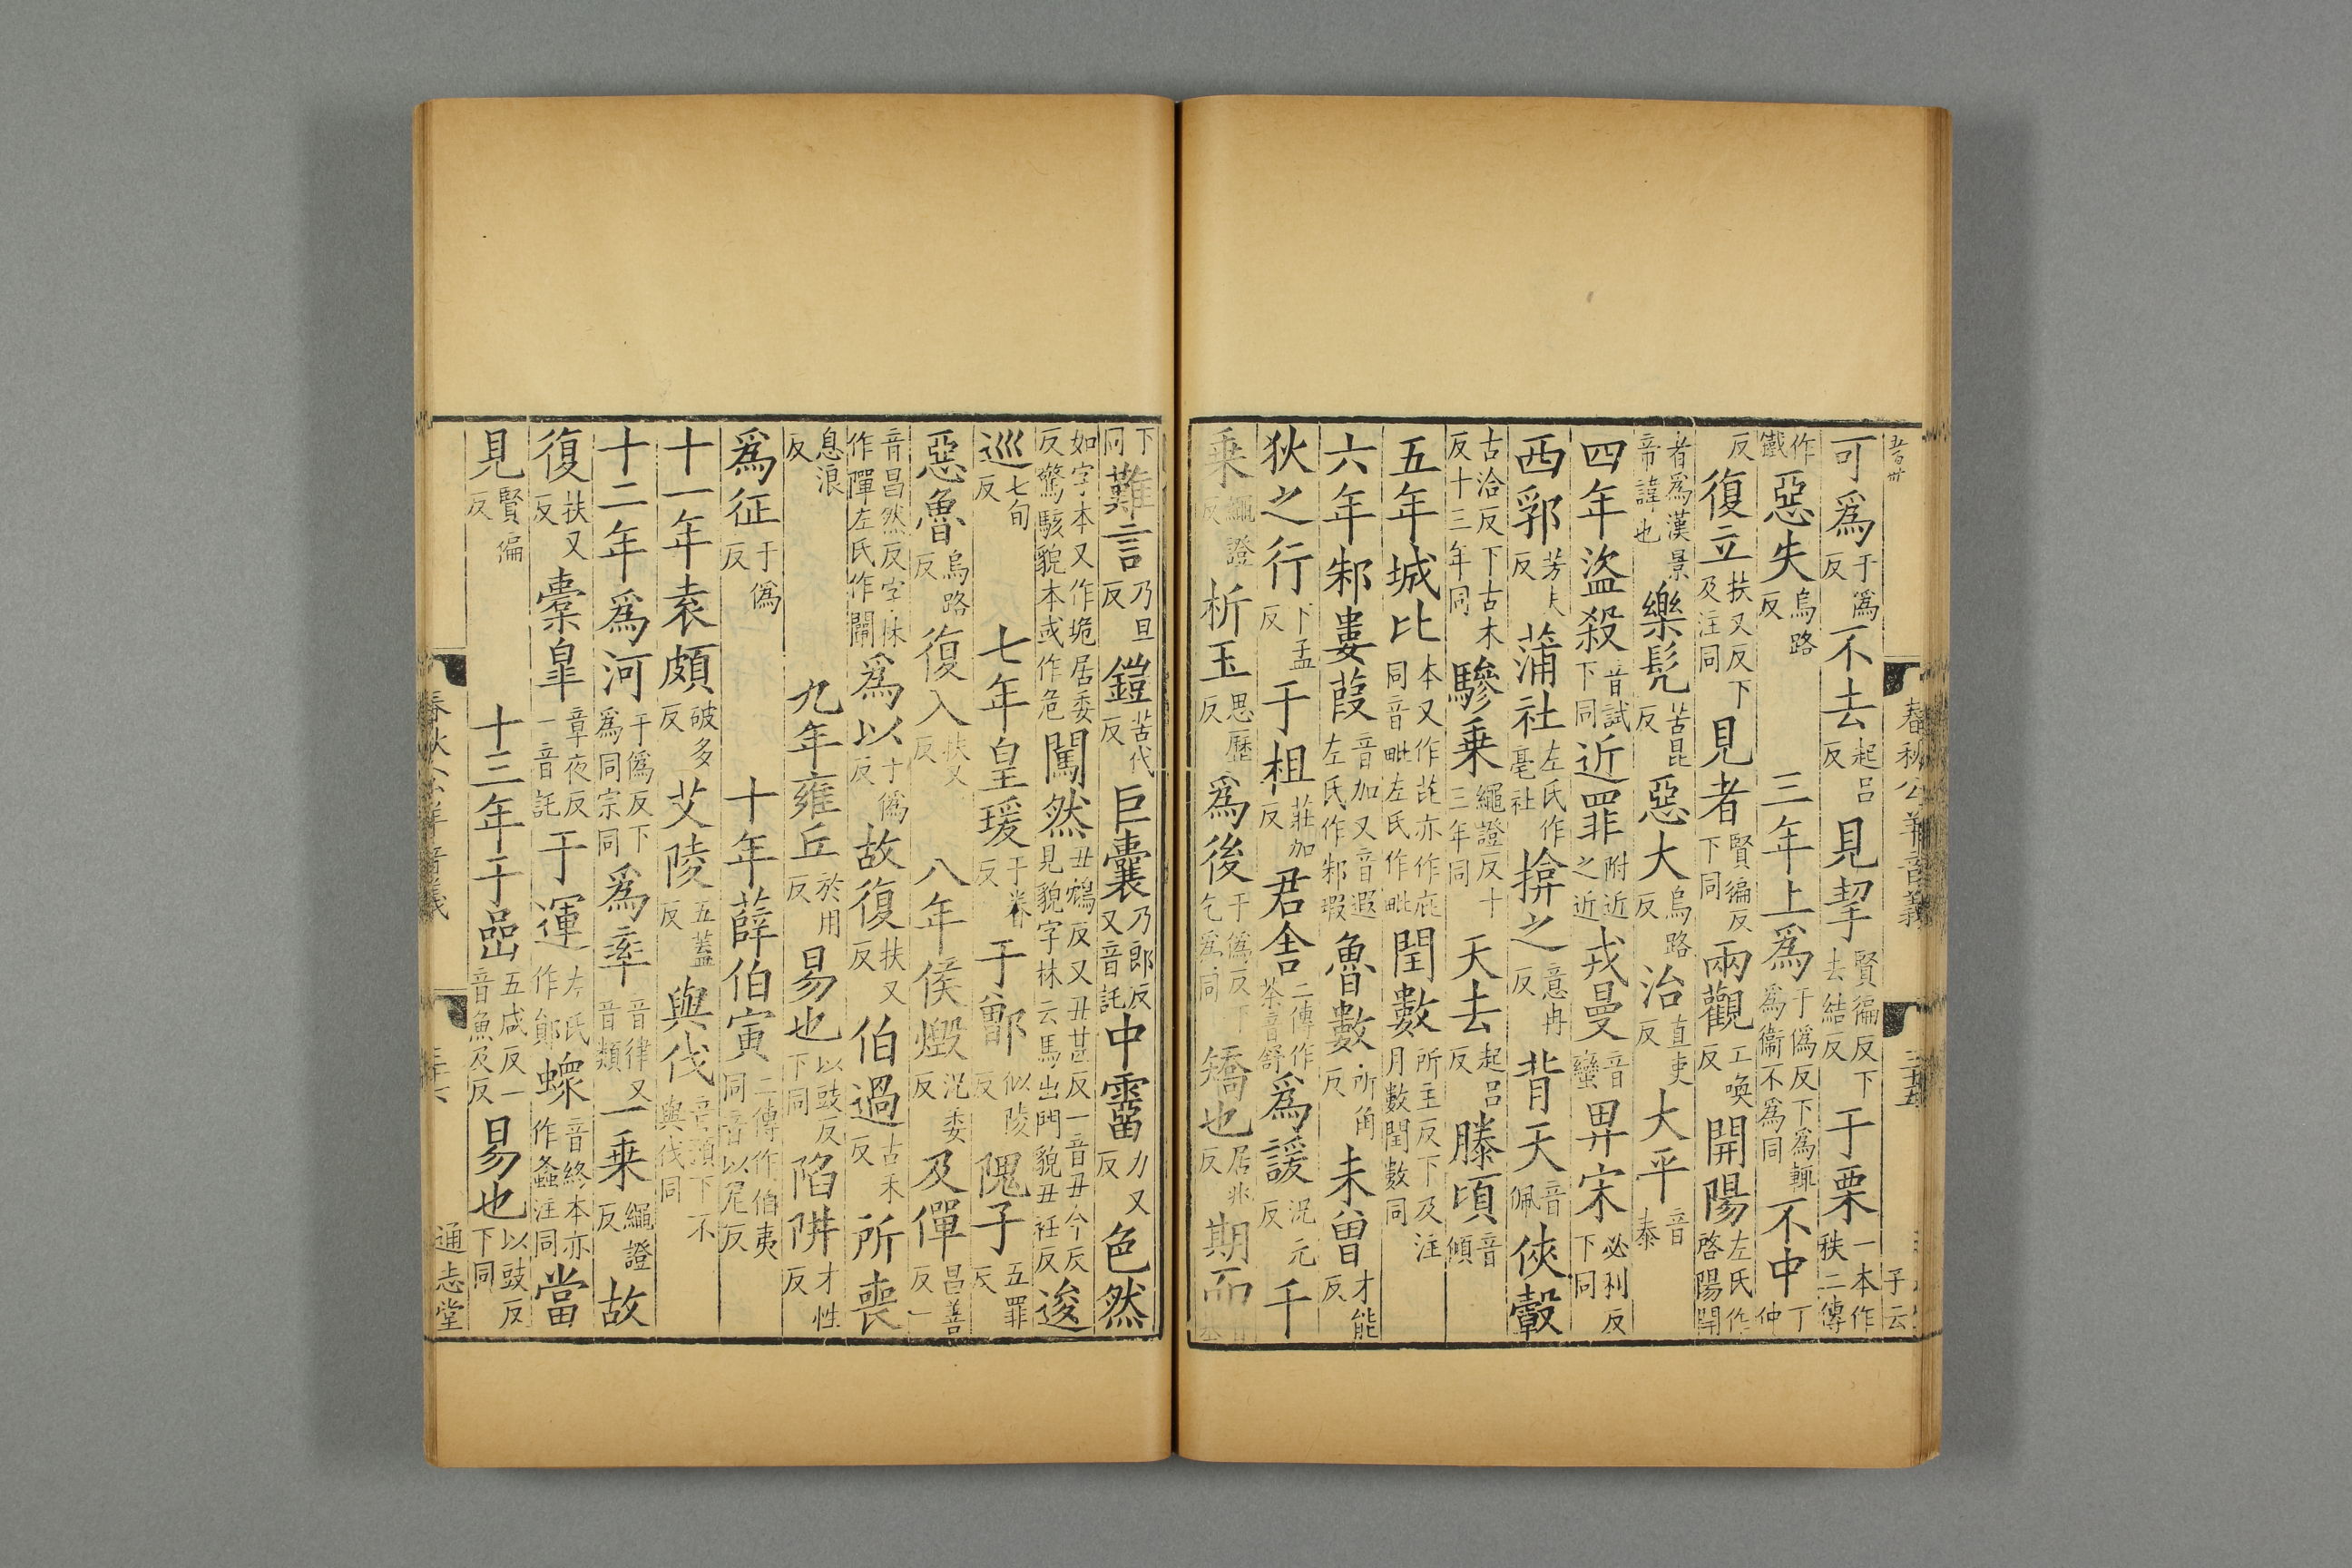 春秋公羊音義
三十五
可爲于僞反不去起呂反見挈賢徧反下去結反于栗一本作秩二傳
作鐵惡失烏路反三年上爲于僞反下爲輒爲衞不爲同不中丁仲
反復立扶又反下及注同見者賢徧反下同兩觀工喚反開陽左氏作啓陽開
者爲漢景帝諱也樂髠苦昆反惡大烏路反治直吏反大平音泰
四年盜殺音試下同近罪附近之近戎曼音蠻畀宋必利反下同
西郛芳夫反蒲社左氏作亳社揜之意冉反背天音佩俠轂
古洽反下古木反十三年同驂乗繩證反十三年同天去起呂反滕頃音傾
五年城比本又作芘亦作庇同音毗左氏作毗閏數所主反下及注月數閏數同
六年邾婁葭音加又音遐左氏作邾瑕魯數所角反未曾才能反
狄之行下孟反于柤莊加反君舍二傳作荼音舒爲諼況元反千
乗繩證反析玉思歷反爲後于僞反下乞爲同矯也居兆反期而
下同難言乃旦反鎧苦代反巨囊乃郎反又音託中霤力又反色然
如字本又作垝居委反驚駭貌本或作危闖然丑鴆反又丑甚反一音丑今反見貌字林云馬出門貌丑衽反逡
巡七旬反七年皇瑗于眷反于鄫似陵反隗子五罪反
惡魯烏路反復入扶又反八年侯燬況委反及僤昌善反一
音昌然反字林作彈左氏作闡爲以于僞反故復扶又反伯過古禾反所喪
息浪反九年雍丘於用反易也以豉反下同陷阱才性反
爲征于僞反十年薛伯寅二傳作伯夷同音以尼反
十一年袁頗破多反艾陵五蓋反與伐音預下不與伐同
十二年爲河于僞反下爲同宗同爲率音律又音類一乗繩證反故
復扶又反橐皐章夜反一音託于運左氏作鄖螽音終本亦作蟊注同當
見賢徧反十三年于嵒五咸反一音魚及反易也以豉反下同
春秋公羊音義
通志堂